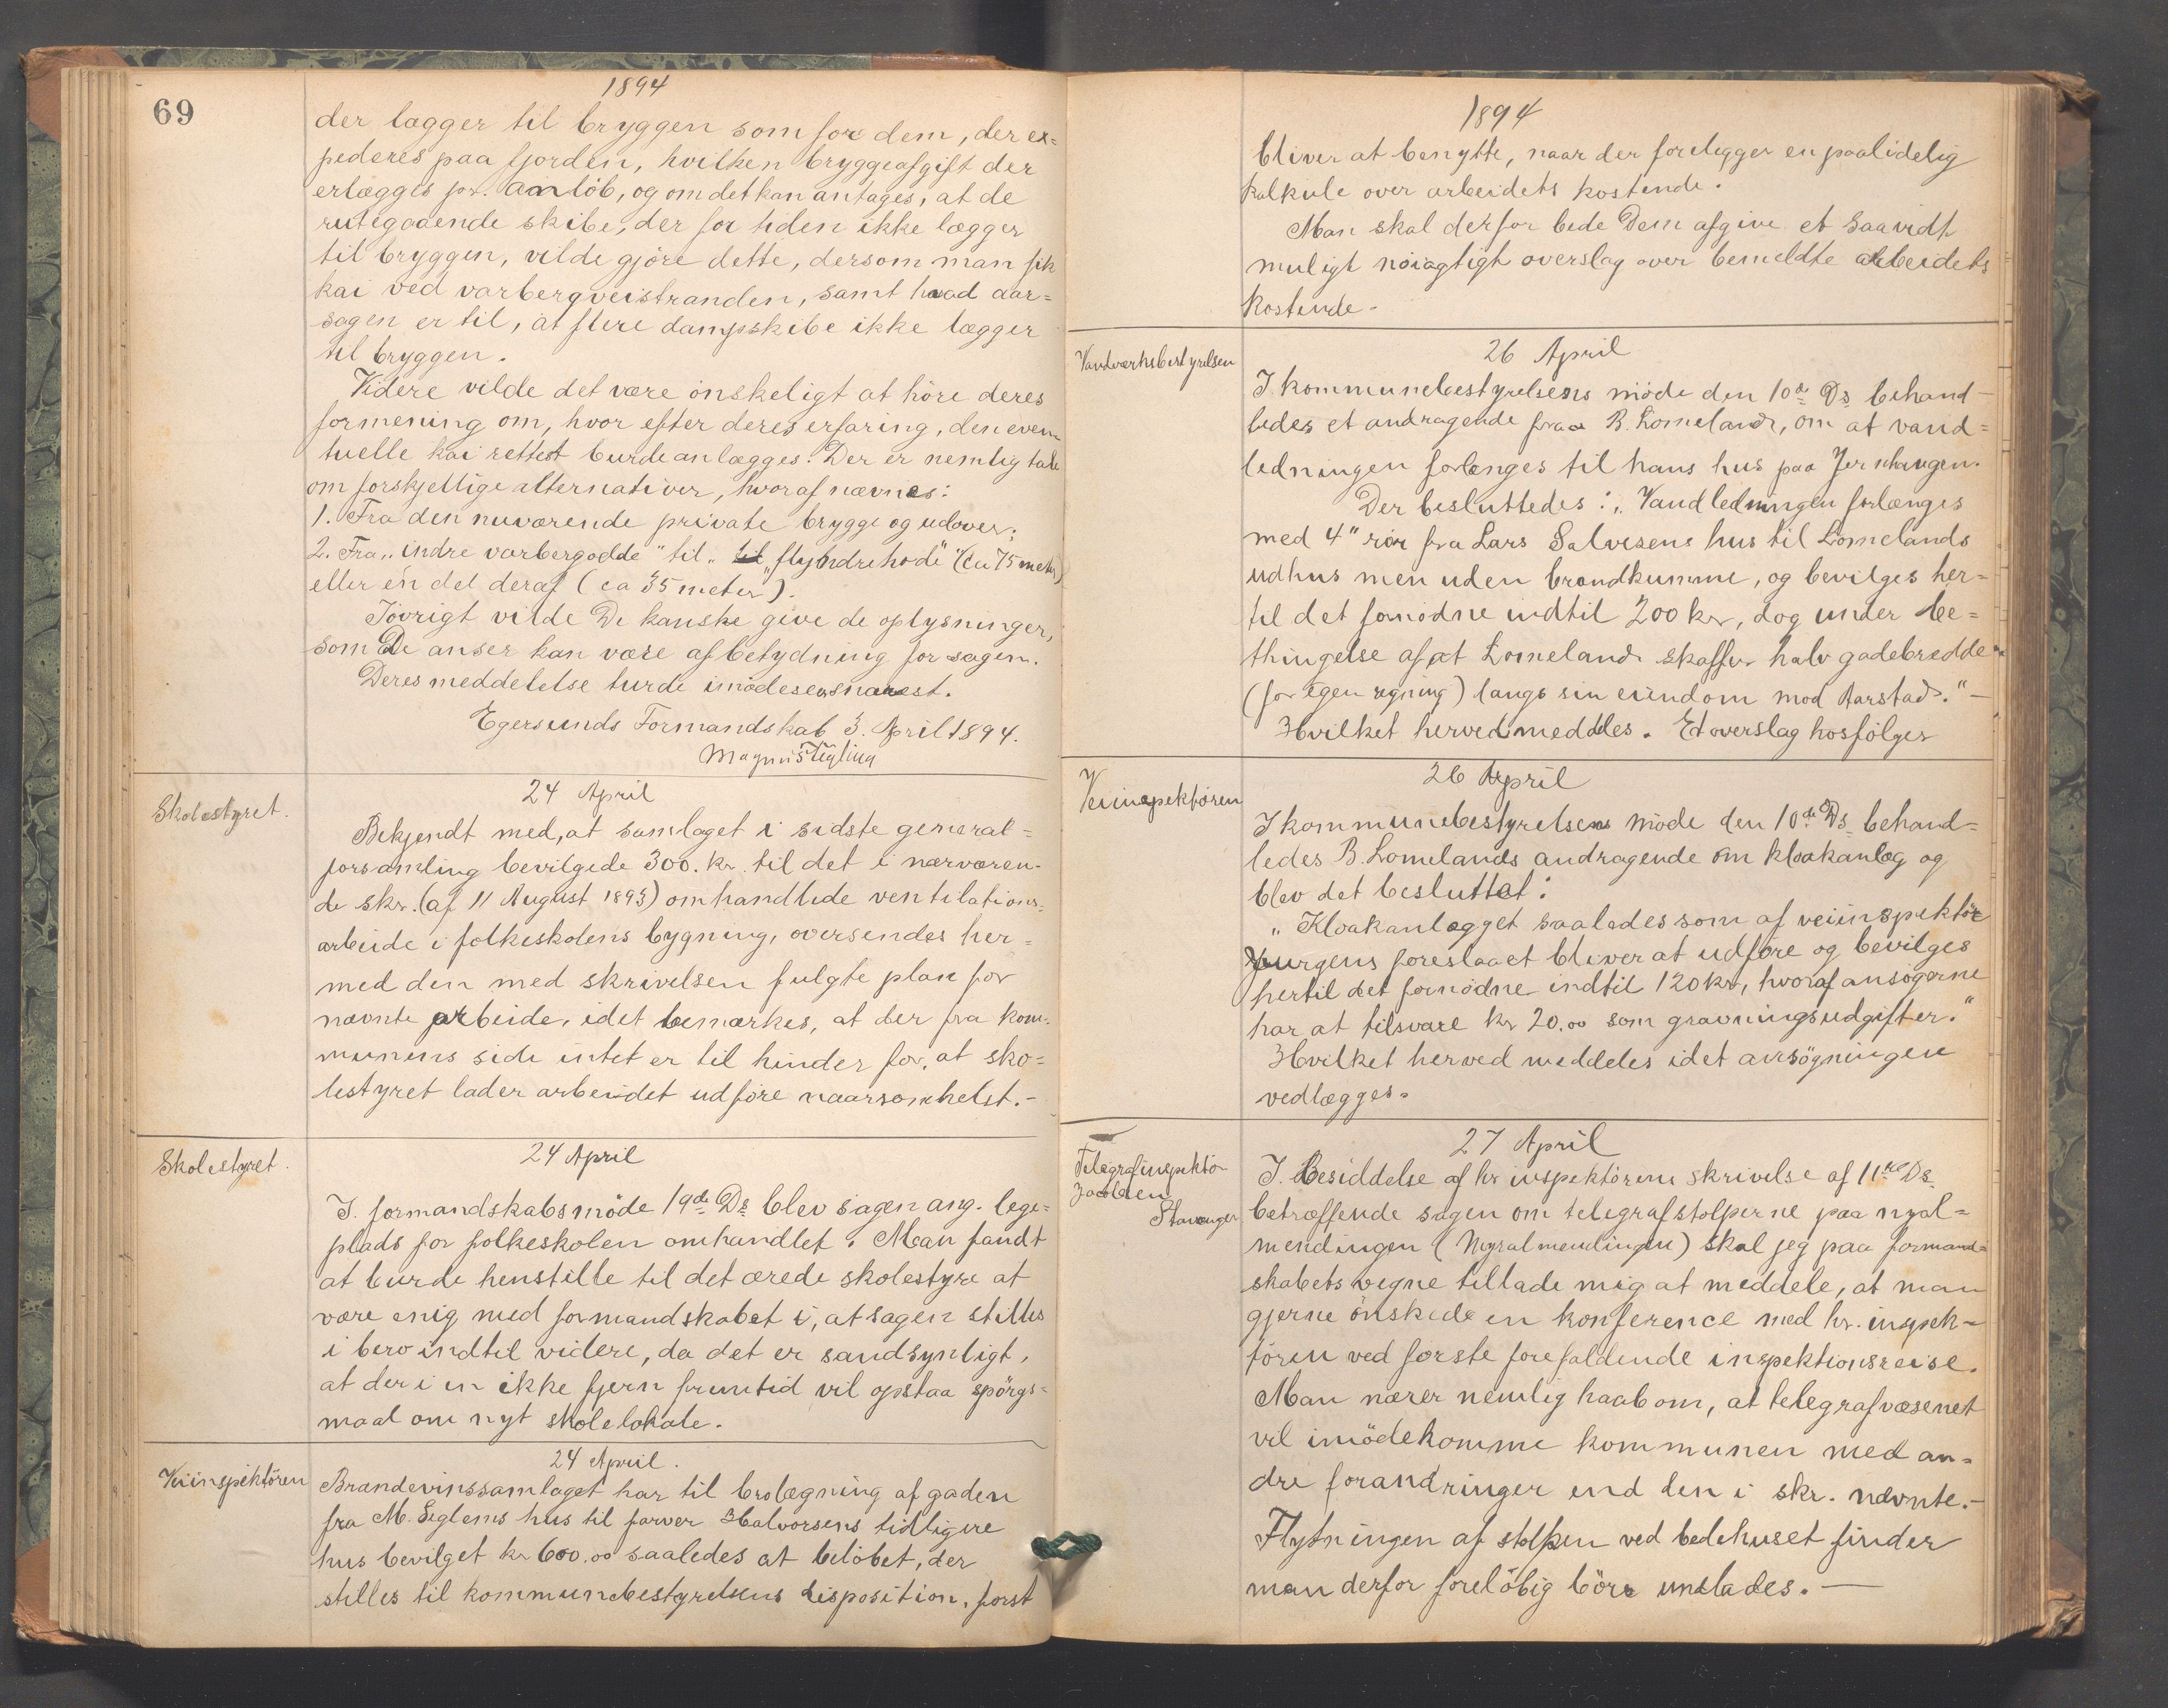 69
1894
der lægger til bryggen som for dem, der ex=
pederes paa fjorden, hvilken bryggeafgift der
erlægges pr. anløb, og om det kan antages, at de
rutegaaende skibe, der for tiden ikke lægger
til bryggen, vilde gjöre dette, dersom man fik
kai ved varbergveistranden, samt hvad aar=
sagen er til, at flere dampskibe ikke lægger
til bryggen.
Videre vilde det være önskeligt at höre deres
formening om, hvor efter deres erfaring, den even=
tuelle kai rettest burde anlægges. Der er nemlig tale
om forskjellige alternativer, hvoraf nævnes:
1. Fra den nuværende private brygge og udover;
2. Fra „indre varbergodde" til „flyndrehode" (ca 75 meter)
eller en del deraf (ca 35 meter).
Iövrigt vilde De kanske give de oplysninger,
som De anser kan være af betydning for sagen.
Deres meddelelse turde imödesees snarest.
Egersunds Formandskab 3. April 1894.
Magnus Tigling
Skolestyret.
24 April
Bekjendt med, at samlaget i sidste general=
forsamling bevilgede 300. kr. til det i nærværen-
de skr. (af 11 August 1893) omhandlede ventilations=
arbeide i folkeskolens bygning, oversendes her=
med den med skrivelsen fulgte plan for
nævnte arbeide, idet bemærkes, at der fra kom-
munens side intet er til hinder for, at sko=
lestyret lader arbeidet udföre naarsomhelst.-
Skolestyret.
24 April
I formandskabsmöde 19de Ds blev sagen ang. lege=
plads for folkeskolen omhandlet. Man fandt
at burde henstille til det ærede skolestyre at
være enig med formandskabet i, at sagen stilles
i bero indtil videre, da det er sandsynligt,
at der i en ikke fjern fremtid vil opstaa spörgs=
maal om nyt skolelokale.
Veiinspektören
24 April.
Brændevinssamlaget har til brolægning af gaden
fra M. Seglems hus til farver Halvorsens tidligere
hus bevilget kr 600.00 saaledes at belöbet, der
stilles til kommunebestyrelsens disposition, först
1894
bliver at benytte, naar der foreligger en paalidelig
kalkule over arbeidets kostende.
Man skal derfor bede Dem afgive et saavidt
muligt nöiagtigt overslag over bemeldte arbeidets
kostende-
Vandværksbestyrelsen
26 April
I kommunebestyrelsens möde den 10de Ds behand-
ledes et andragende fra B. Lomeland, om at vand=
ledningen forlenges til hans hus paa Jernhaugen.
Der besluttedes: „Vandledningen forlænges
med 4" rör fra Lars Salvesens hus til Lomelands
udhus men uden brandkumme, og bevilges her=
til det fornödne indtil 200 kr, dog under be=
thingelse af at Lomeland skaffer halv gadebredde
(for egen regning) langs sin eiendom mod Aarstad."-
Hvilket herved meddeles. Et overslag hosfölger
Veiinspektören
26 April
I kommunebestyrelsens möde den 10de Ds behand=
ledes B. Lomelands andragende om kloakanlæg og
blev det besluttet:
„Kloakanlægget saaledes som af veiinspektör
Jurgens foreslaaet bliver at udföre og bevilges
hertil det fornödne indtil 120 kr, hvoraf ansögerne
har at tilsvare kr 20.00 som gravningsudgifter."
Hvilket herved meddeles idet ansögningen
vedlægges.
Telegrafinspektör
Jacobsen
Stavanger
27 April
I Besiddelse af hr inspektörens skrivelse af 11te Ds.
betræffende sagen om telegrafstolperne paa nyal=
mendingen (Myralmendingen) skal jeg paa formand=
skabets vegne tillade mig at meddele, at man
gjerne önskede en konference med hr. inspek-
tören ved förste forefaldende inspektionsreise.
Man nærer nemlig haab om, at telegrafvæsenet
vil imödekomme kommunen med an=
dre forandringer end den i skr. nævnte.-
Flytningen af stolpen ved bedehuset finder
man derfor forelöbig bör undlades.-